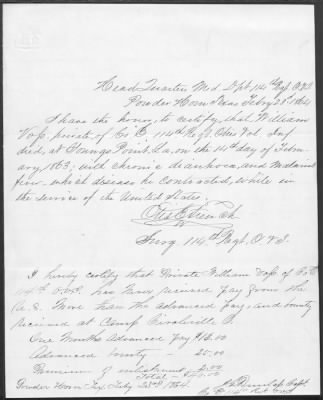 Head Quarters Med. Dept. 114th Regt. O.V.I.
Powder Horn Texas Febry 21st 1864
I have the honor, to certify, that William
Voss, private of Co. E. 114th Regt. Ohio Vol. Inf
died, at Youngs Point, La, on the 14th day of Febru-
ary, 1863; with chronic diarrhoea, and Malarial
fever, which diseases he contracted, while in
the service of the United States.
Surg. 114th Regt. O.V.I.
I hereby certify that Private William Voss of Co. E
114th O.V.I. has never received pay from the
U.S. more than the advanced pay, and bounty
received at Camp Circleville O.
One Months Advanced pay $13.00
Advanced bounty - 25.00
Premium of enlistment 2.00
Total - $40.00
Powder Horn Tex. Feby 23rd 1864.
Capt